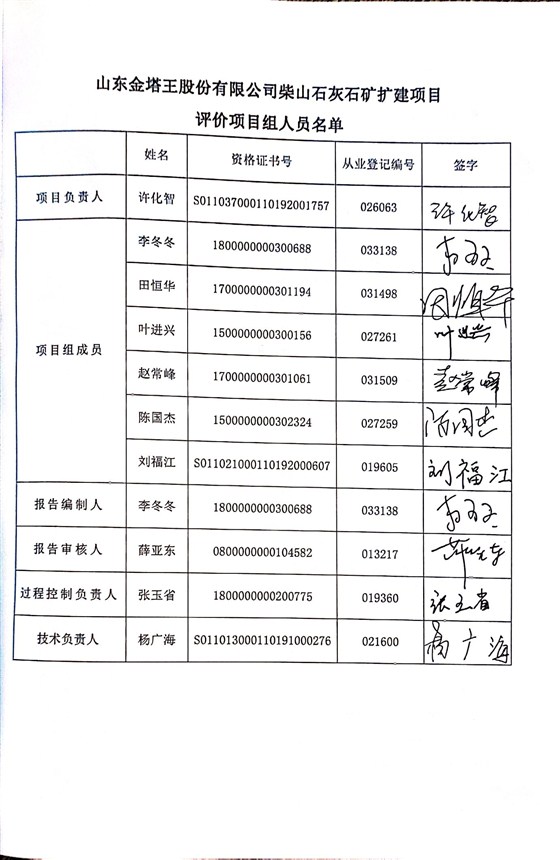 山东金塔王股份有限公司柴山石灰石矿扩建项目
评价项目组人员名单
姓名 资格证书号 从业登记编号 签字
项目负责人 许化智 S011037000110192001757 026063 许化智
李冬冬 1800000000300688 033138 李冬冬
田恒华 1700000000301194 031498 田恒华
叶进兴 1500000000300156 027261 叶进兴
项目组成员
赵常峰 1700000000301061 031509 赵常峰
陈国杰 1500000000302324 027259 陈国杰
刘福江 S011021000110192000607 019605 刘福江
报告编制人 李冬冬 1800000000300688 033138 李冬冬
报告审核人 薛亚东 0800000000104582 013217 薛亚东
过程控制负责人 张玉省 1800000000200775 019360 张玉省
技术负责人 杨广海 S011013000110191000276 021600 杨广海